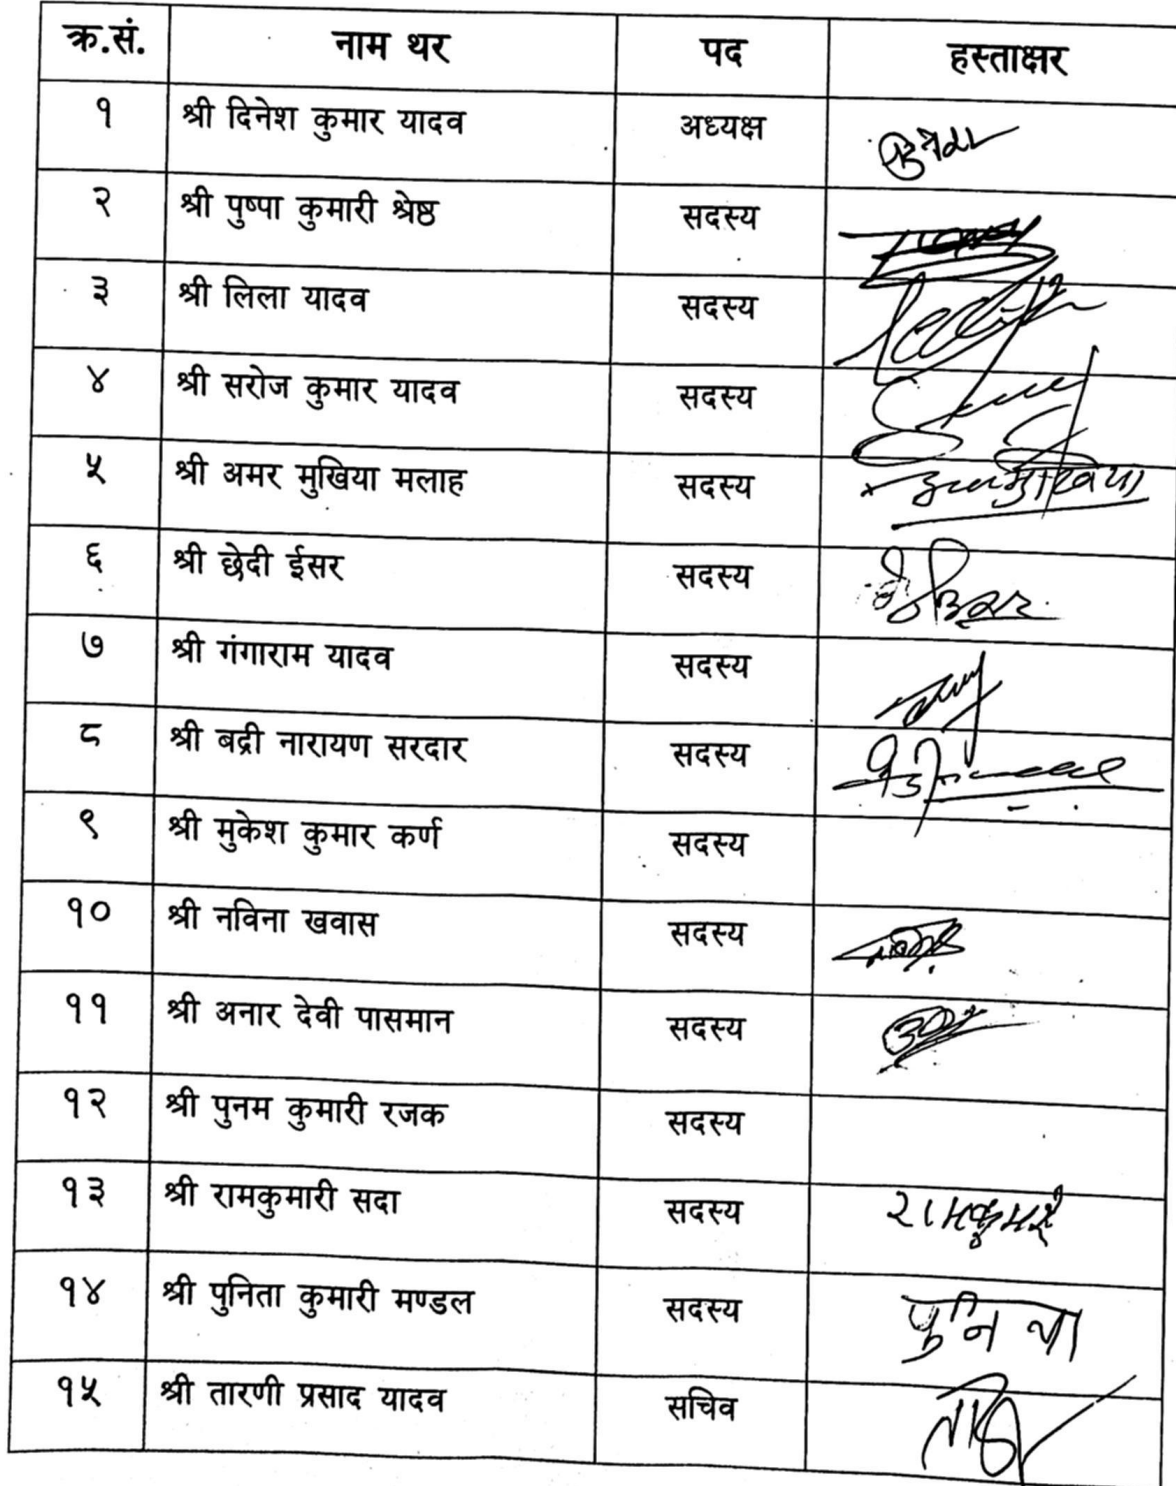 क्र.सं. नाम थर पद हस्ताक्षर
१ श्री दिनेश कुमार यादव अध्यक्ष
२ श्री पुष्पा कुमारी श्रेष्ठ सदस्य
३ श्री लिला यादव सदस्य
४ श्री सरोज कुमार यादव सदस्य
५ श्री अमर मुखिया मलाह सदस्य
६ श्री छेदी ईसर सदस्य
७ श्री गंगाराम यादव सदस्य
८ श्री बद्री नारायण सरदार सदस्य
९ श्री मुकेश कुमार कर्ण सदस्य
१० श्री नविना खवास सदस्य
११ श्री अनार देवी पासमान सदस्य
१२ श्री पुनम कुमारी रजक सदस्य
१३ श्री रामकुमारी सदा सदस्य रामकुमारी
१४ श्री पुनिता कुमारी मण्डल सदस्य
१५ श्री तारणी प्रसाद यादव सचिव